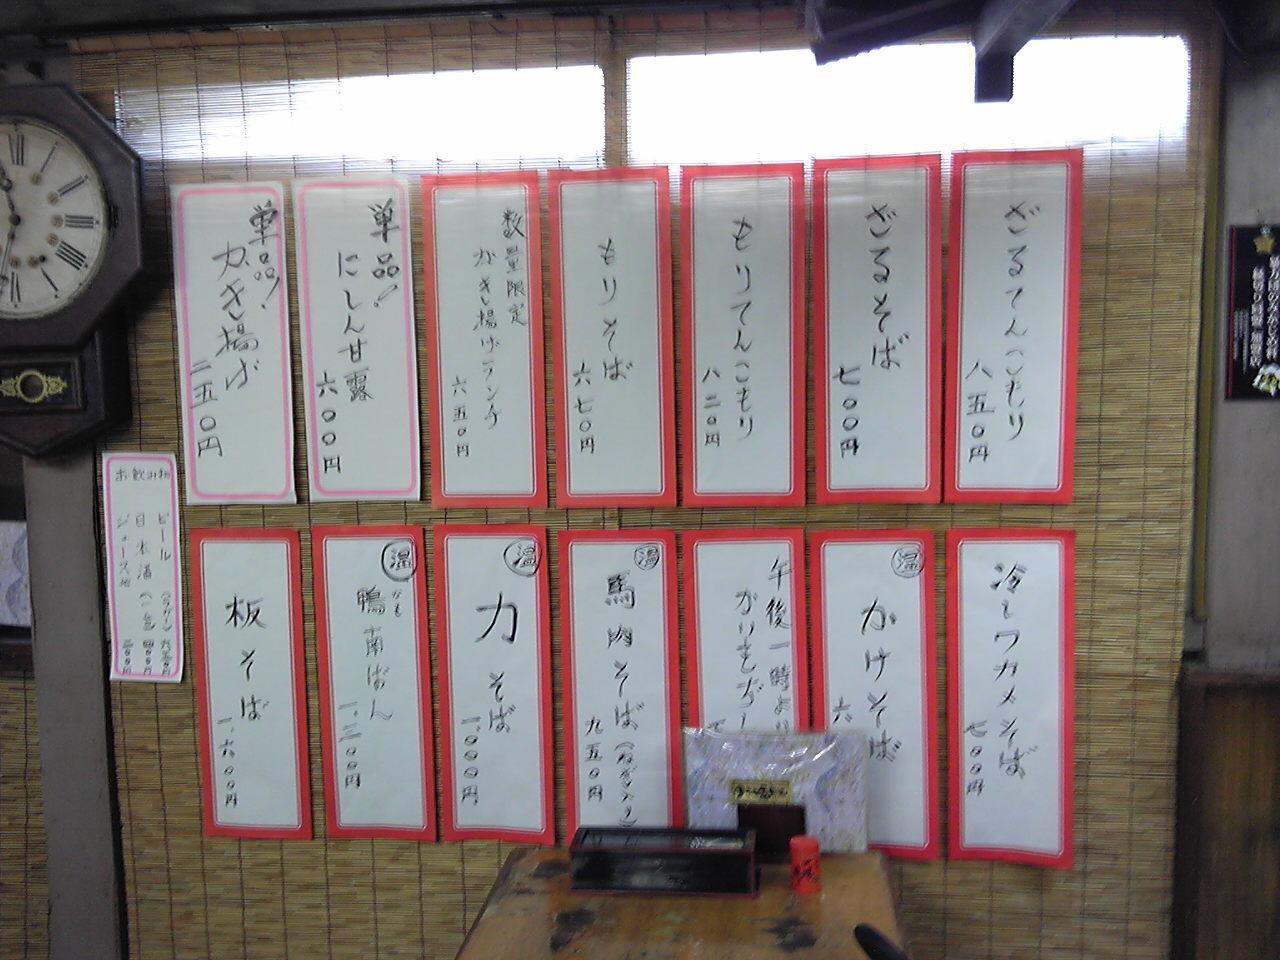 ざるてんこもり
八五〇円
ざるそば
七〇〇円
もりてんこもり
八二〇円
もりそば
六七〇円
数量限定
かき揚げランチ
六五〇円
単品！
にしん甘露
六〇〇円
単品！
かき揚げ
二五〇円
冷しワカメそば
七〇〇円
温
かけそば
六
午後一時より
温
馬肉そば（ねぎ入り）
九五〇円
温
力そば
一、〇〇〇円
温
かも
鴨南ばん
一、三〇〇円
板そば
一、六〇〇円
お飲み物
ビール
日本酒（一合）四〇〇円
ジュース他 二〇〇円